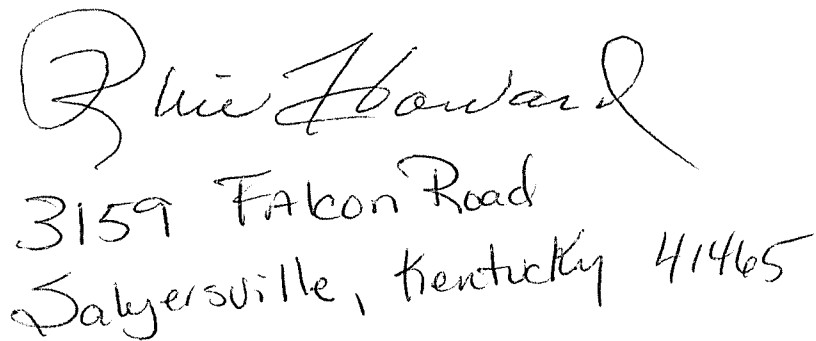 Howard
3159 Falcon Road
Salyersville, Kentucky 41465